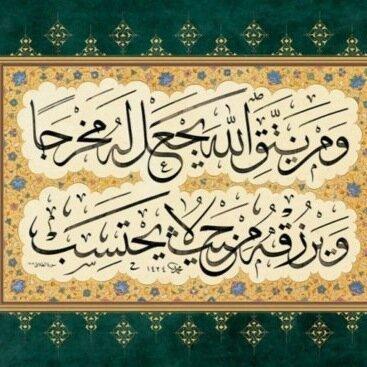 وَمَنْ يَتَّقِ اللّٰهَ يَجْعَلْ لَهُ مَخْرَجًا
وَيَرْزُقْهُ مِنْ حَيْثُ لَا يَحْتَسِبُ
محمد ١٤٢٤